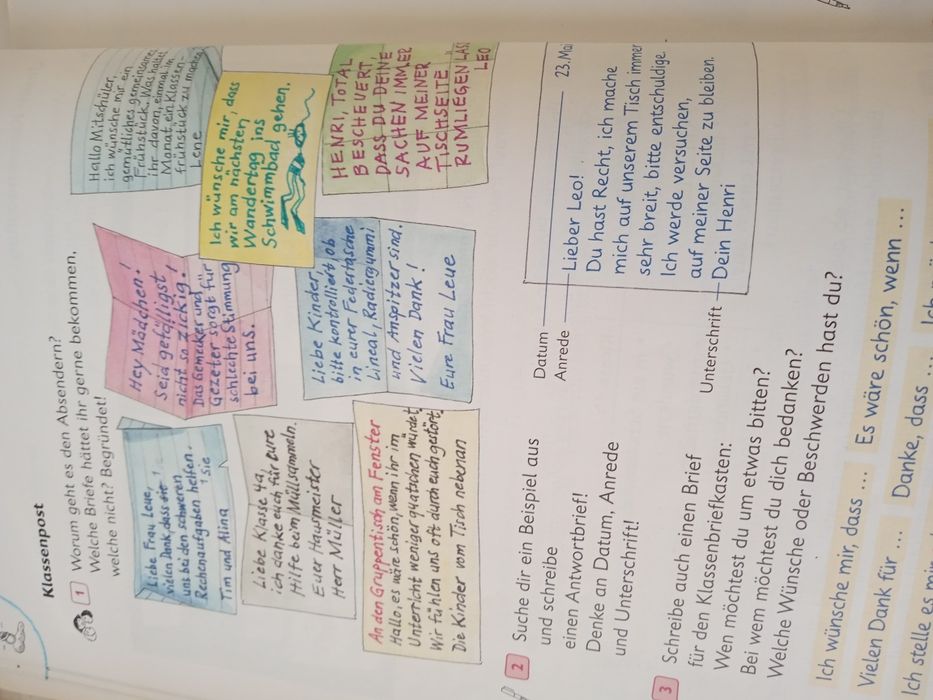 Klassenpost
1
Worum geht es den Absendern?
Welche Briefe hättet ihr gerne bekommen,
welche nicht? Begründet!
Liebe Frau Leue,
vielen Dank, dass die
uns bei den schweren
Rechenaufgaben helfen.
Sie
Tim und Alina
Hey Mädchen!
Seid gefälligst
nicht so zickig!
Das Gemecker und
Gezeter sorgt für
schlechte Stimmung
bei uns.
Hallo Mitschüler,
ich wünsche mir ein
gemütliches gemeinsames
Frühstück. Was haltet
ihr davon, einmal im
Monat ein Klassen-
frühstück zu machen
Lene
Ich wünsche mir, dass
wir am nächsten
Wandertag ins
Schwimmbad gehen.
Liebe Klasse 4a,
ich danke euch für eure
Hilfe beim Müllsammeln.
Euer Hausmeister
Herr Müller
Liebe Kinder,
bitte kontrolliert, ob
in eurer Federtasche
Lineal, Radiergummi
und Anspitzer sind.
Vielen Dank!
Eure Frau Leue
HENRI, TOTAL
BESCHEUERT,
DASS DU DEINE
SACHEN IMMER
AUF MEINER
TISCHSEITE
RUMLIEGEN LÄS
LEO
An den Gruppentisch am Fenster
Hallo, es wäre schön, wenn ihr im
Unterricht weniger quatschen würdet.
Wir fühlen uns oft durch euch gestört.
Die Kinder vom Tisch nebenan
2
Suche dir ein Beispiel aus
und schreibe
einen Antwortbrief!
Denke an Datum, Anrede
und Unterschrift!
Datum
23. Mai
Anrede
Lieber Leo!
Du hast Recht, ich mache
mich auf unserem Tisch immer
sehr breit, bitte entschuldige.
Ich werde versuchen,
auf meiner Seite zu bleiben.
Unterschrift
Dein Henri
3
Schreibe auch einen Brief
für den Klassenbriefkasten:
Wen möchtest du um etwas bitten?
Bei wem möchtest du dich bedanken?
Welche Wünsche oder Beschwerden hast du?
Ich wünsche mir, dass ...
Es wäre schön, wenn ...
Vielen Dank für ...
Danke, dass ...
Ich stelle es mir
Ich